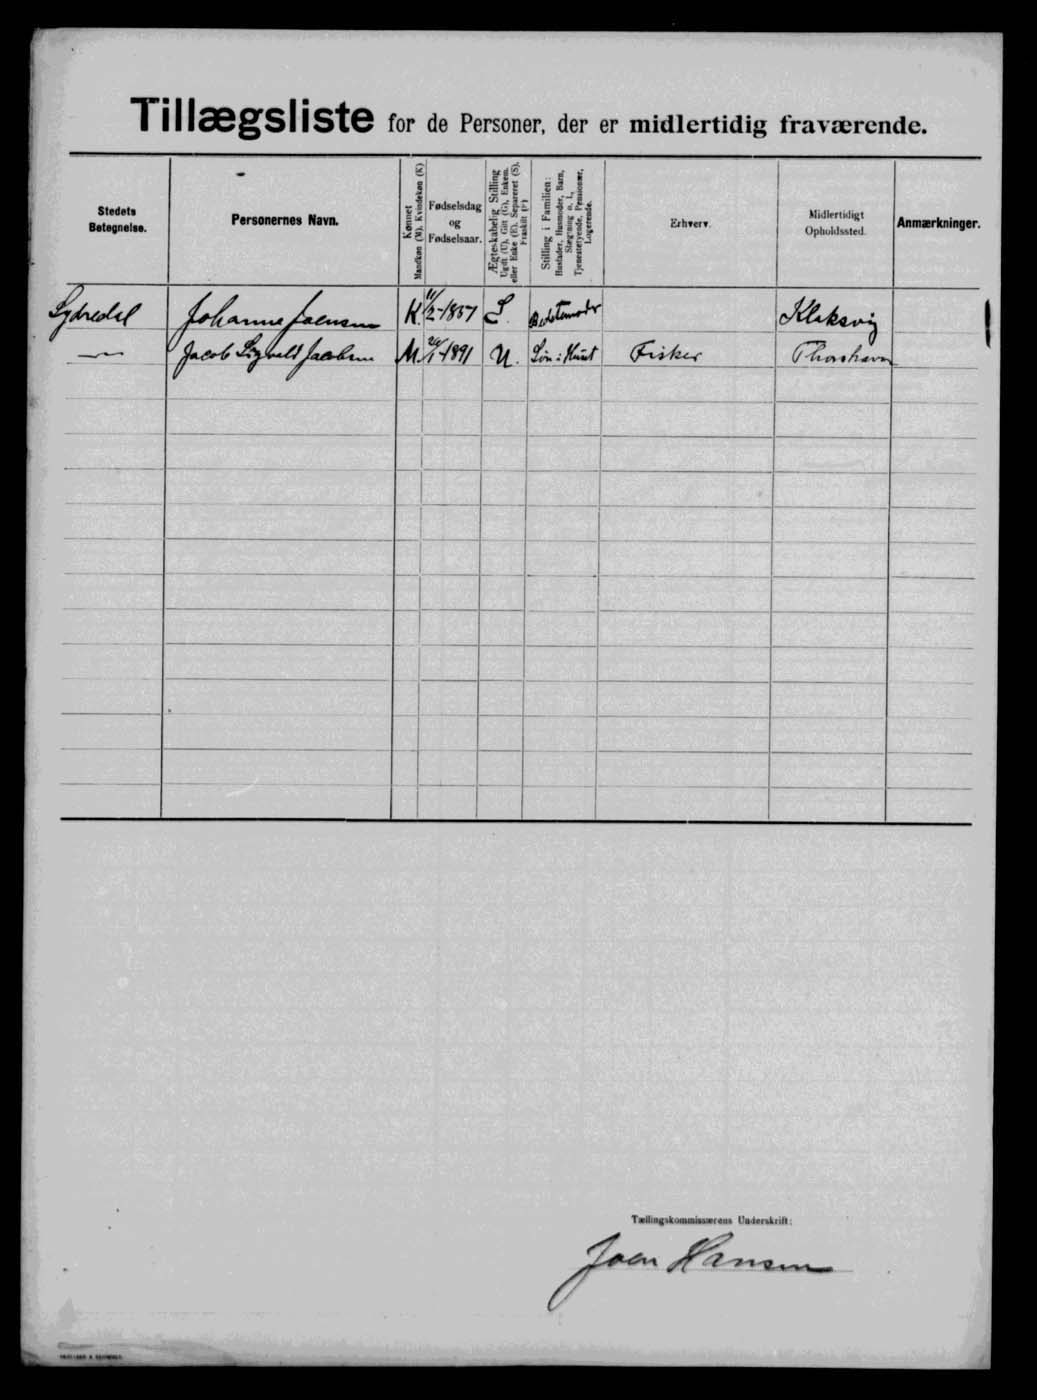 Tillægsliste for de Personer, der er midlertidig fraværende.
Stedets Betegnelse.
Personernes Navn.
Kønnet Mandkøn (M), Kvindekøn (K)
Fødselsdag og Fødselsaar.
Ægteskabelig Stilling Ugift (U), Gift (G), Enkem. eller Enke (E), Separeret (S), Fraskilt (F)
Stilling i Familien: Husfader, Husmoder, Barn, Slægtning o. l., Tjenestetyende, Pensionær, Logerende.
Erhverv.
Midlertidigt Opholdssted.
Anmærkninger.
Sydredal Johanne Joensen K. 11/2-1857 Bedstemoder Klaksvig
— Jacob Sigvald Jacobsen M. 1-1891 U. Søn i Huset Fisker Thorshavn
Tællingskommissærens Underskrift:
Joen Hansen